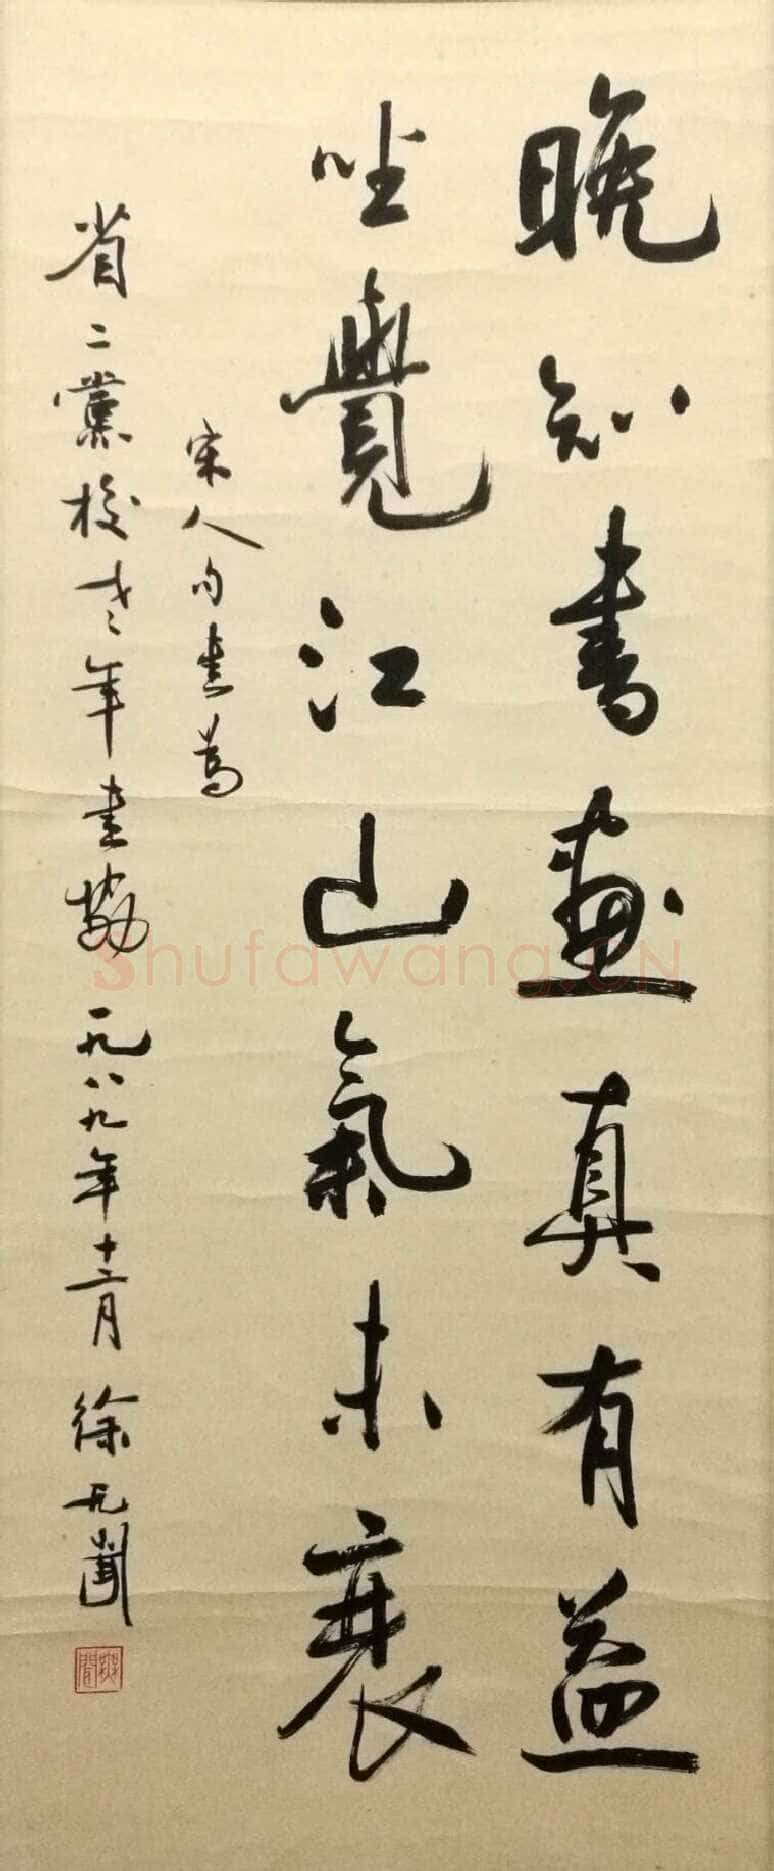 晚知書畫真有益
坐覺江山氣未衰
宋人句書為
省二黨校老年書协
一九八九年十二月 徐无聞
無聞
Shufawang.CN